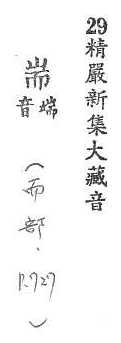 29精嚴新集大藏音
耑
音端
（而部．P.727）